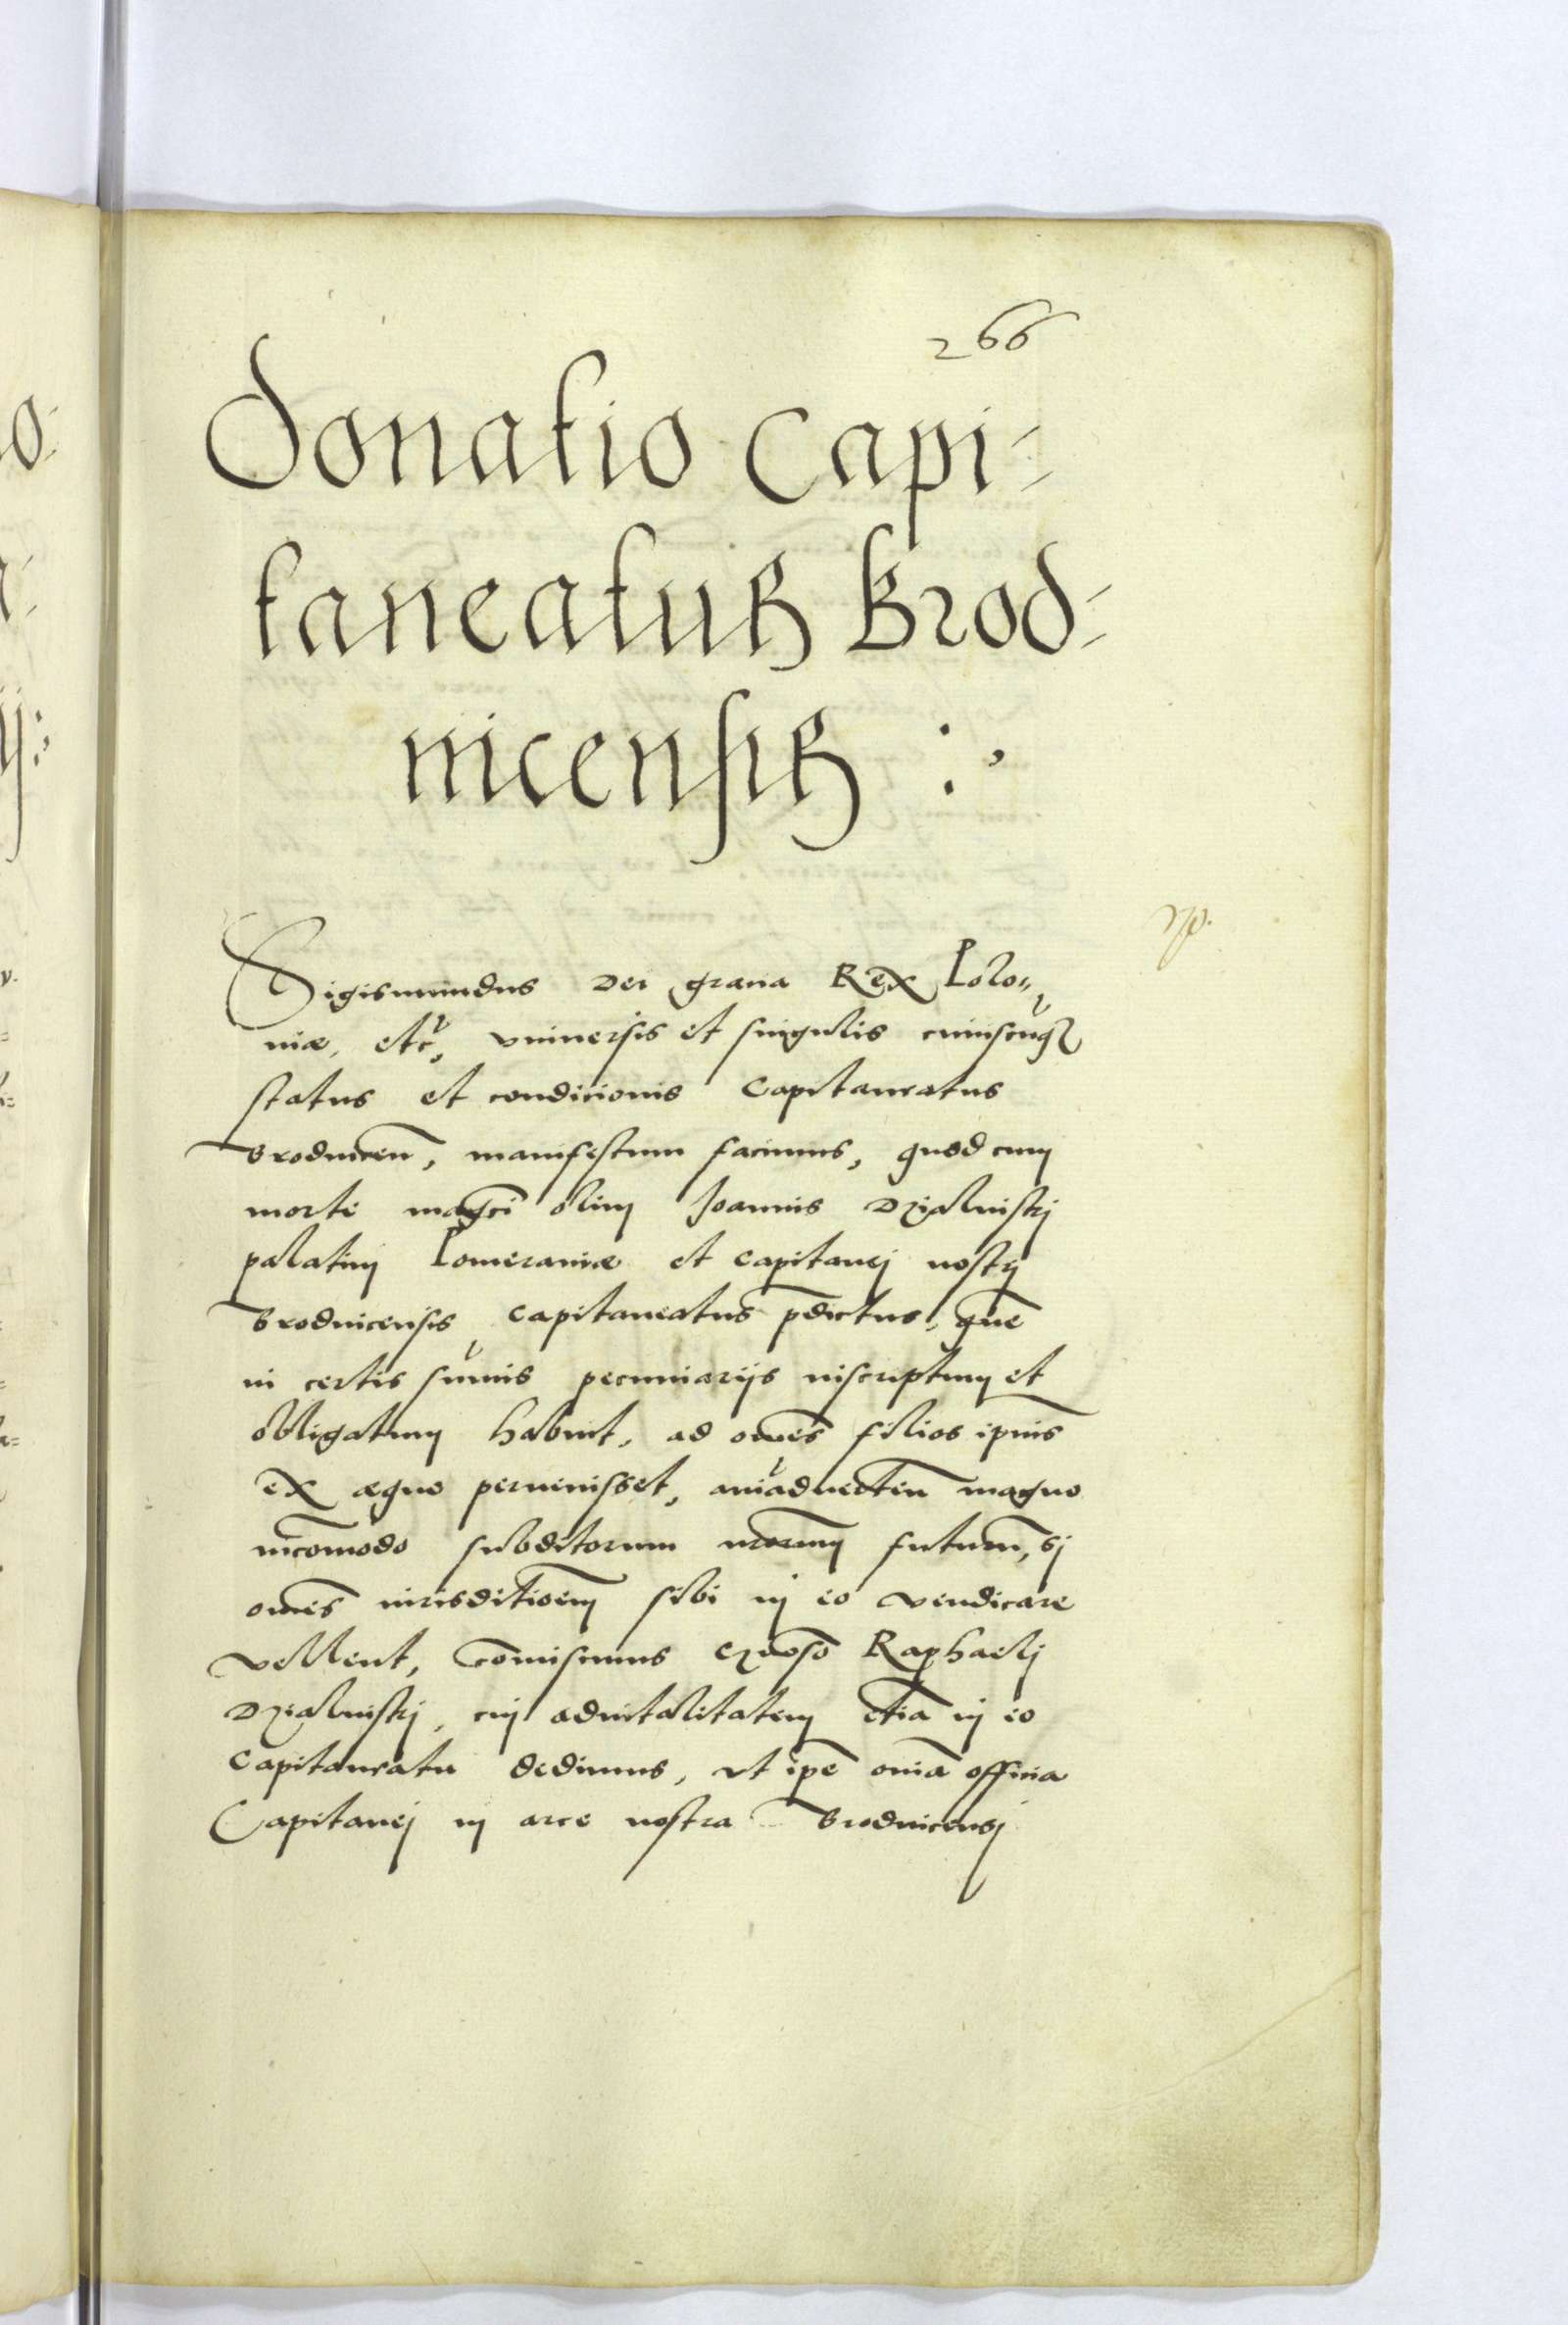 266
Donatio Capi-
taneatus Brod-
nicensis :,
Sigismundus Dei gracia Rex Polo-
niæ, etc̃, vniuersis et singulis cuiuscũq₃
status et condicionis Capitaneatus
Brodnicen̄, manifestum facimus, quod cum
morte mag̅ci olim Joannis Dzialinskj
palatinj Pomeraniæ et capitanej nostrj
Brodnicensis, capitaneatus p̄dictus, quē
in certis sum̄is pecuniarijs inscriptum et
obligatum habuit, ad om̄es filios ip̄ius
ex æquo peruenisset, aīaduerten̄ magno
incōmodo subditorum n̄rorum futurū, sj
om̄es iurisditioēm sibi in eo vendicare
vellent, cōmisimus gn̄oso Raphaelj
Dzialinskj, cuj aduitalitatem etiā in eo
Capitaneatu dedimus, vt ip̄e om̄ia officia
Capitanej in arce nostra Brodnicensj